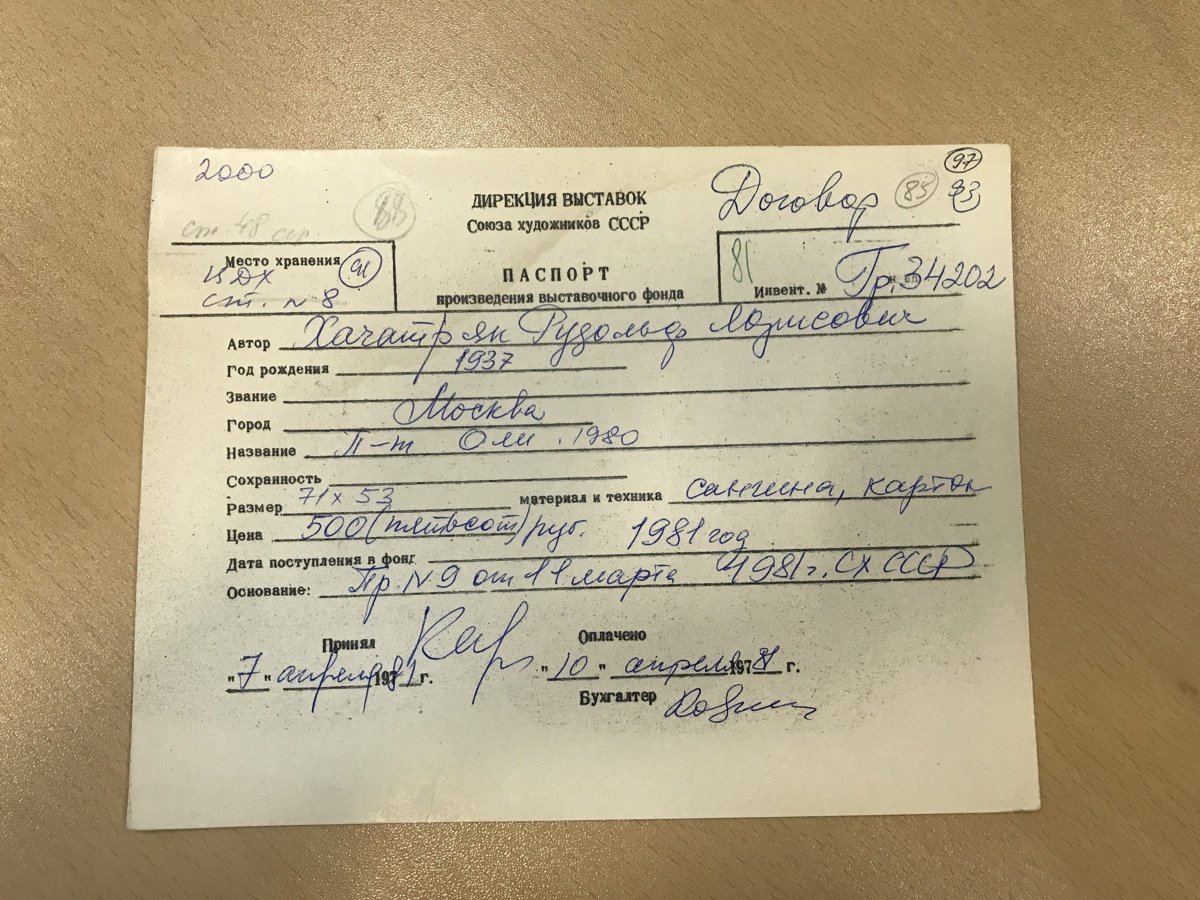 2000
97
ДИРЕКЦИЯ ВЫСТАВОК
Договор 83 93
Союза художников СССР
ст. 48 88
Место хранения 91
ЦДХ
ст. № 8
ПАСПОРТ
произведения выставочного фонда
81
Инвент. № Гр. 34202
Автор Хачатрян Рудольф Лорисович
Год рождения 1937
Звание
Город Москва
Название П-т Оли. 1980
Сохранность
Размер 71 x 53 материал и техника сангина, картон
Цена 500 (пятьсот) руб. 1981 год
Дата поступления в фонд
Основание: Пр. № 9 от 11 марта 1981 г. СХ СССР
Принял
Оплачено
"7" апреля 1981 г. "10" апреля 1981 г.
Бухгалтер